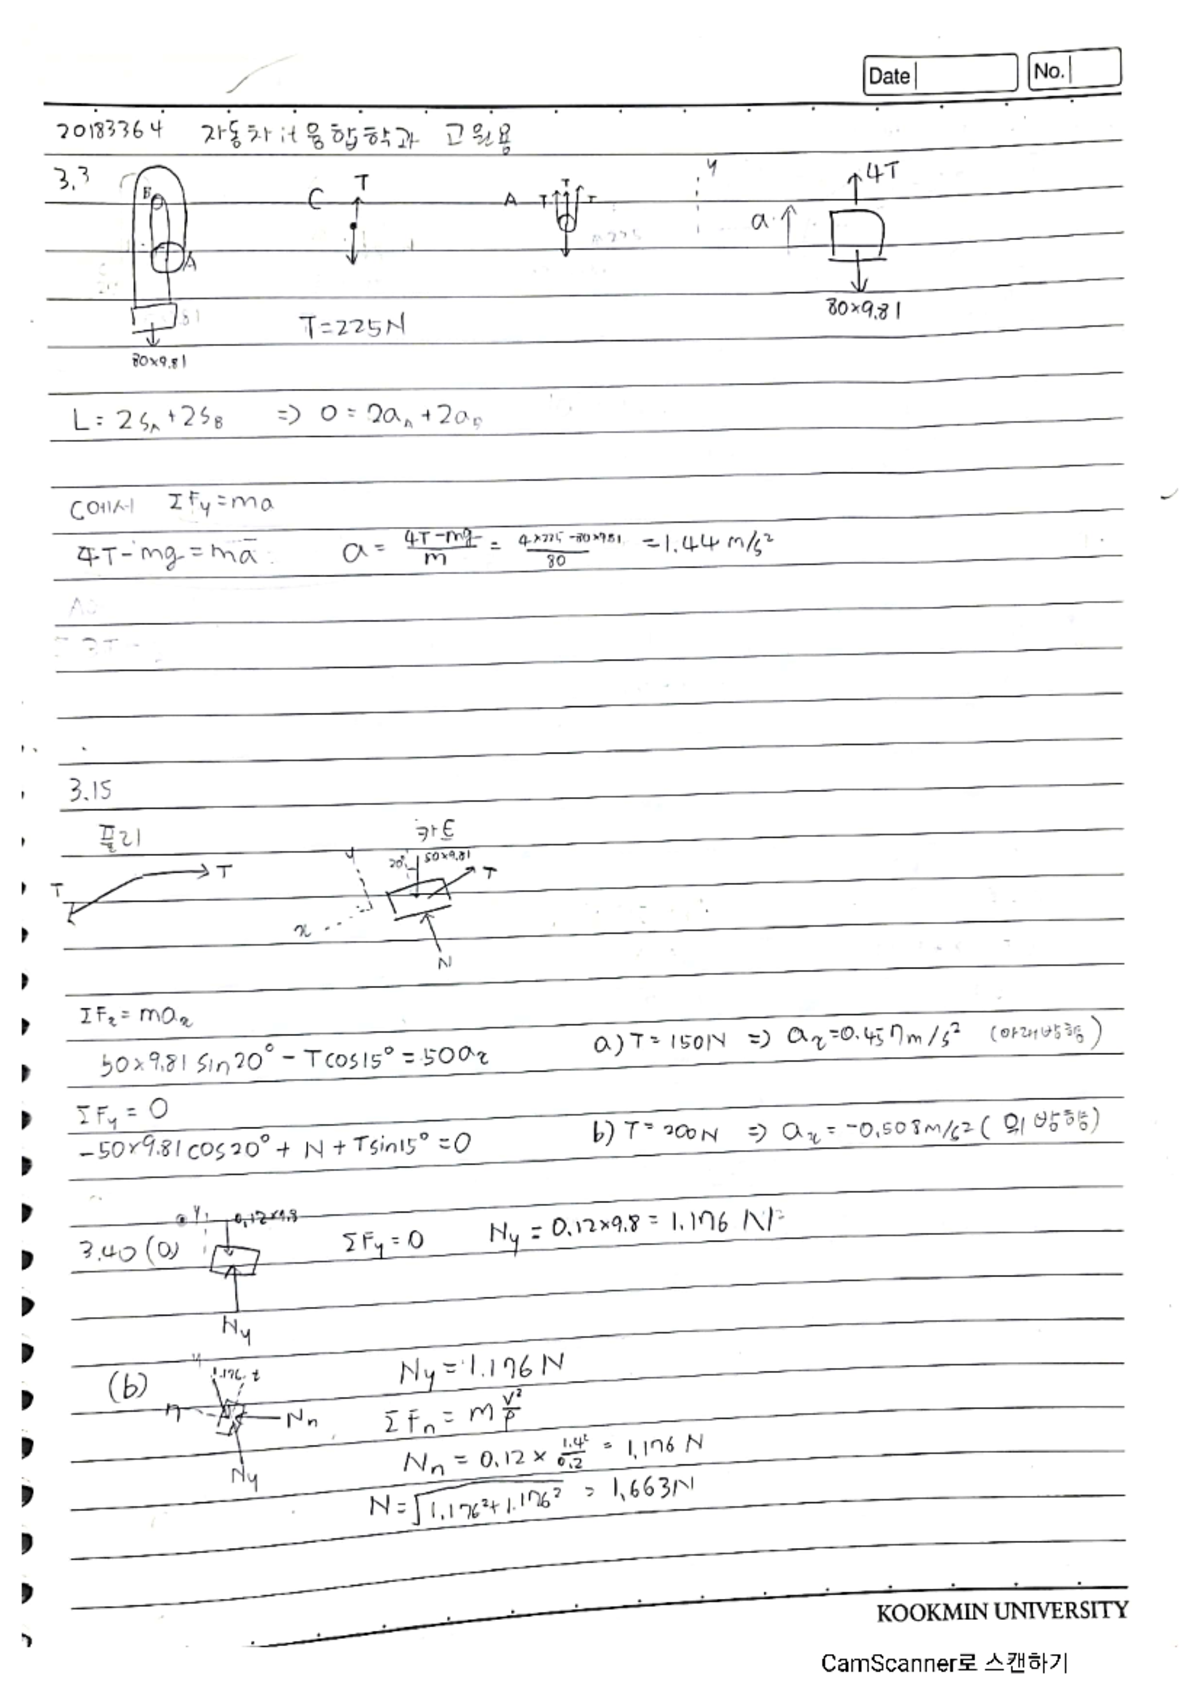 Date
No.
20183364 자동차it융합학과 고원용
3.3
B
A
80×9.81
C T
A T T T
y
a
4T
80×9.81
T=225N
L = 2S_A + 2S_B ⇒ 0 = 2a_A + 2a_B
C에서 ΣF_y = ma
4T-mg = ma a = (4T-mg)/m = (4×225-80×9.81)/80 = 1.44 m/s²
3.15
풀리 카트
T T
y x 20° 50×9.81 T N
ΣF_x = ma_x
50×9.81 sin20° - Tcos15° = 50a_x a) T = 150N ⇒ a_x = 0.457m/s² (아래방향)
ΣF_y = 0
-50×9.81cos20° + N + Tsin15° = 0 b) T = 200N ⇒ a_x = -0.508m/s² (위 방향)
y 0.12×9.8
3.40 (a) ΣF_y = 0 N_y = 0.12×9.8 = 1.176 N
N_y
(b) y 1.176 t N_y = 1.176 N
n N_n ΣF_n = m v²/ρ
N_y N_n = 0.12 × 1.4²/0.2 = 1.176 N
N = √(1.176²+1.176²) = 1.663N
KOOKMIN UNIVERSITY
CamScanner로 스캔하기